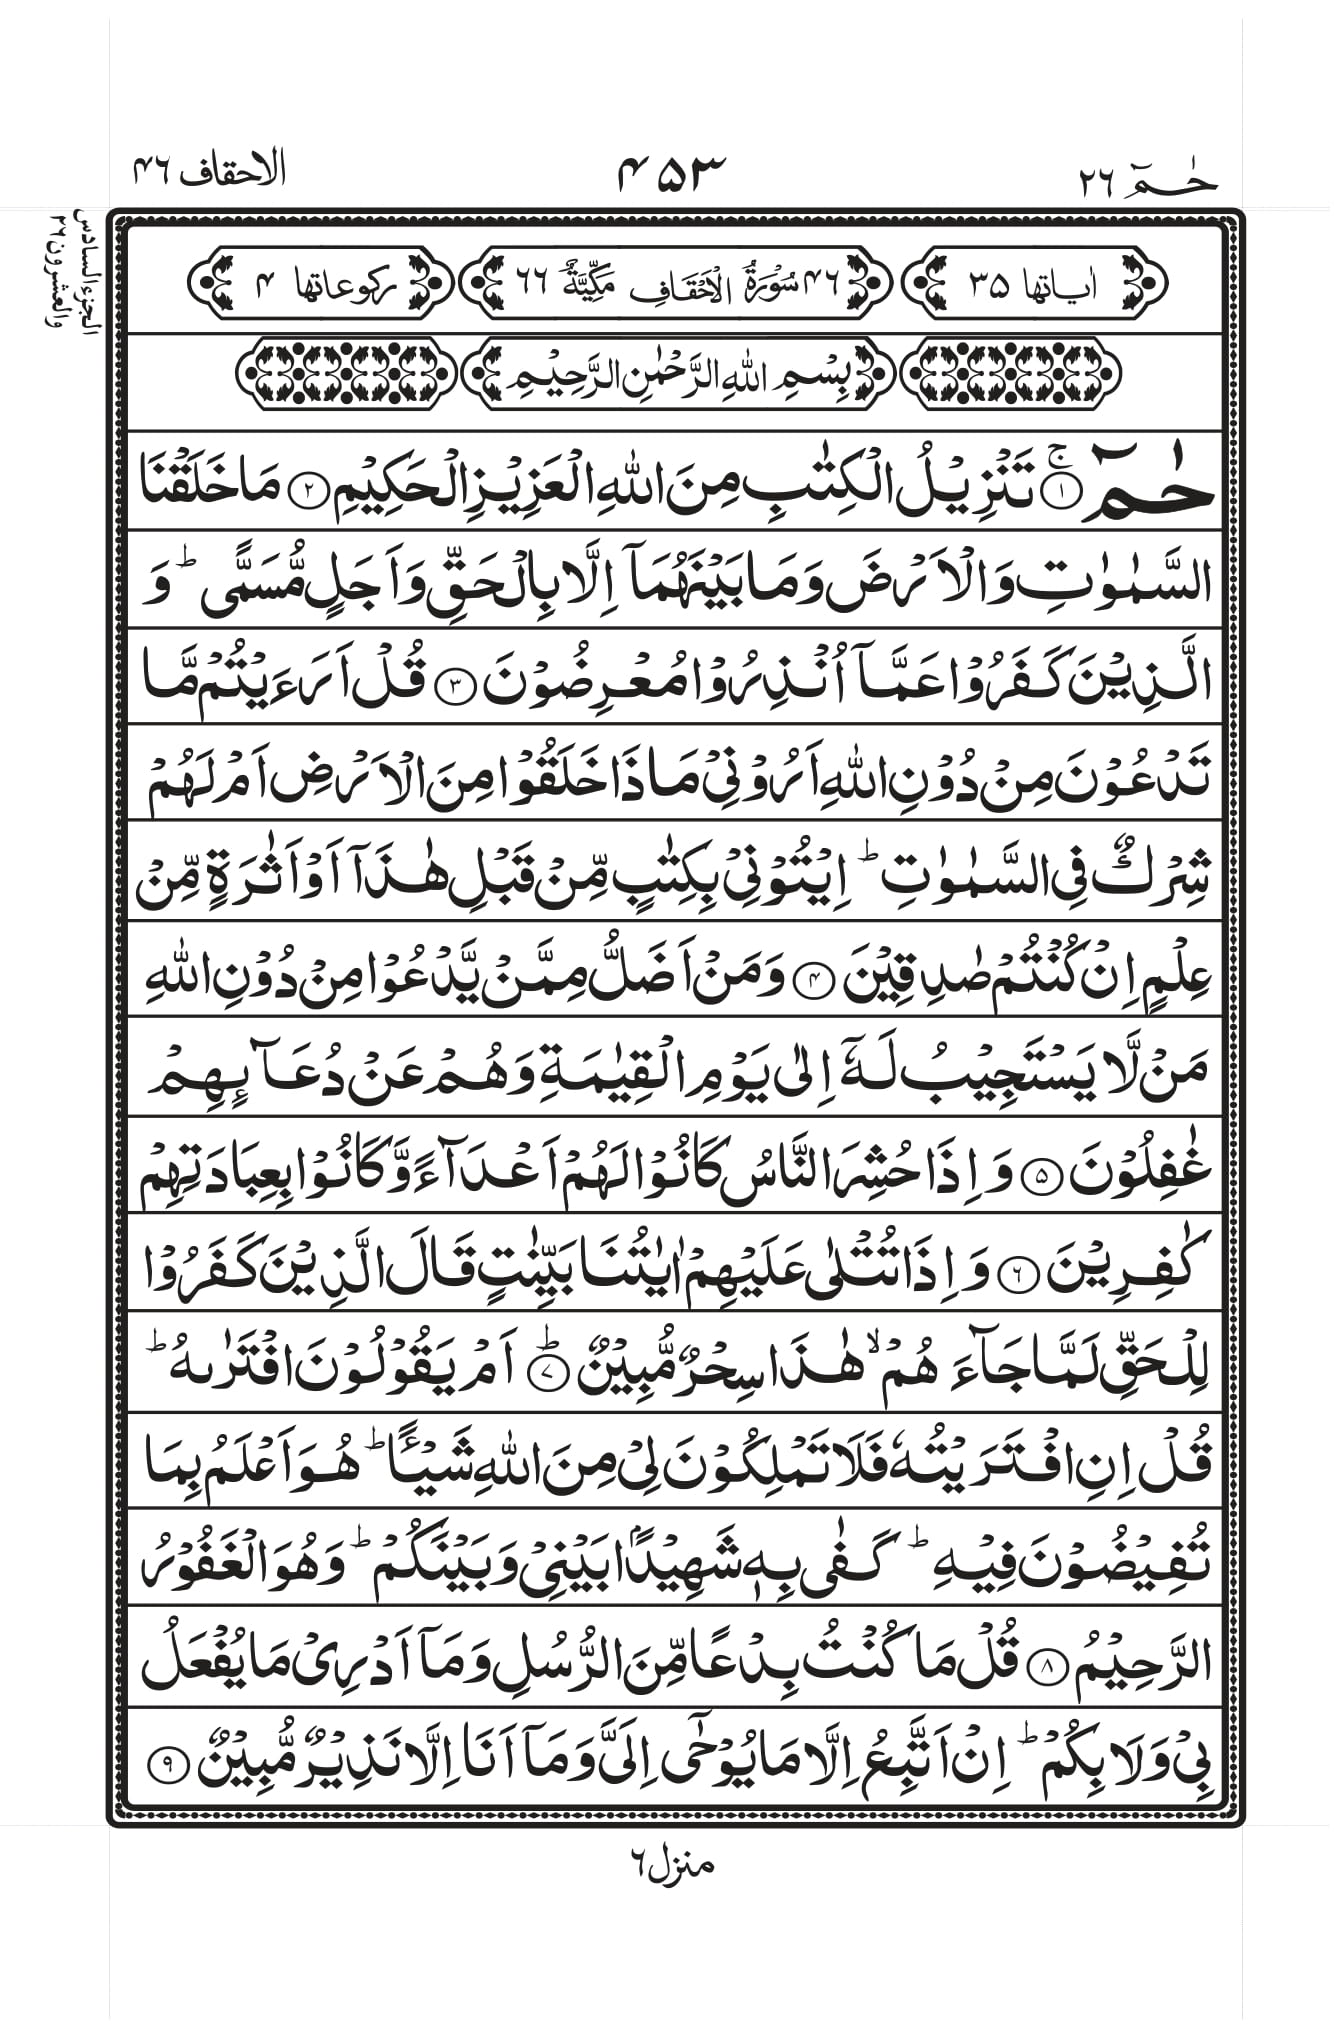 حٰمٓ ٢٦
٤٥٣
الاحقاف ٤٦
الجزء السادس
والعشرون ٢٦
اٰیاتها ٣٥
٤٦ سُوْرَةُ الْاَحْقَافِ مَكِّیَّةٌ ٦٦
ركوعاتها ٤
بِسْمِ اللّٰهِ الرَّحْمٰنِ الرَّحِیْمِ
حٰمٓ ۚ﴿١﴾ تَنْزِیْلُ الْكِتٰبِ مِنَ اللّٰهِ الْعَزِیْزِ الْحَكِیْمِ ﴿٢﴾ مَا خَلَقْنَا
السَّمٰوٰتِ وَ الْاَرْضَ وَ مَا بَیْنَهُمَاۤ اِلَّا بِالْحَقِّ وَ اَجَلٍ مُّسَمًّی ؕ وَ
الَّذِیْنَ كَفَرُوْا عَمَّاۤ اُنْذِرُوْا مُعْرِضُوْنَ ﴿٣﴾ قُلْ اَرَءَیْتُمْ مَّا
تَدْعُوْنَ مِنْ دُوْنِ اللّٰهِ اَرُوْنِیْ مَاذَا خَلَقُوْا مِنَ الْاَرْضِ اَمْ لَهُمْ
شِرْكٌ فِی السَّمٰوٰتِ ؕ اِیْتُوْنِیْ بِكِتٰبٍ مِّنْ قَبْلِ هٰذَاۤ اَوْ اَثٰرَةٍ مِّنْ
عِلْمٍ اِنْ كُنْتُمْ صٰدِقِیْنَ ﴿٤﴾ وَ مَنْ اَضَلُّ مِمَّنْ یَّدْعُوْا مِنْ دُوْنِ اللّٰهِ
مَنْ لَّا یَسْتَجِیْبُ لَهٗۤ اِلٰی یَوْمِ الْقِیٰمَةِ وَ هُمْ عَنْ دُعَآىِٕهِمْ
غٰفِلُوْنَ ﴿٥﴾ وَ اِذَا حُشِرَ النَّاسُ كَانُوْا لَهُمْ اَعْدَآءً وَّ كَانُوْا بِعِبَادَتِهِمْ
كٰفِرِیْنَ ﴿٦﴾ وَ اِذَا تُتْلٰی عَلَیْهِمْ اٰیٰتُنَا بَیِّنٰتٍ قَالَ الَّذِیْنَ كَفَرُوْا
لِلْحَقِّ لَمَّا جَآءَ هُمْ ۙ هٰذَا سِحْرٌ مُّبِیْنٌ ؕ﴿٧﴾ اَمْ یَقُوْلُوْنَ افْتَرٰىهُ ؕ
قُلْ اِنِ افْتَرَیْتُهٗ فَلَا تَمْلِكُوْنَ لِیْ مِنَ اللّٰهِ شَیْـًٔا ؕ هُوَ اَعْلَمُ بِمَا
تُفِیْضُوْنَ فِیْهِ ؕ كَفٰی بِهٖ شَهِیْدًۢا بَیْنِیْ وَ بَیْنَكُمْ ؕ وَ هُوَ الْغَفُوْرُ
الرَّحِیْمُ ﴿٨﴾ قُلْ مَا كُنْتُ بِدْعًا مِّنَ الرُّسُلِ وَ مَاۤ اَدْرِیْ مَا یُفْعَلُ
بِیْ وَ لَا بِكُمْ ؕ اِنْ اَتَّبِعُ اِلَّا مَا یُوْحٰۤی اِلَیَّ وَ مَاۤ اَنَا اِلَّا نَذِیْرٌ مُّبِیْنٌ ﴿٩﴾
منزل ٦